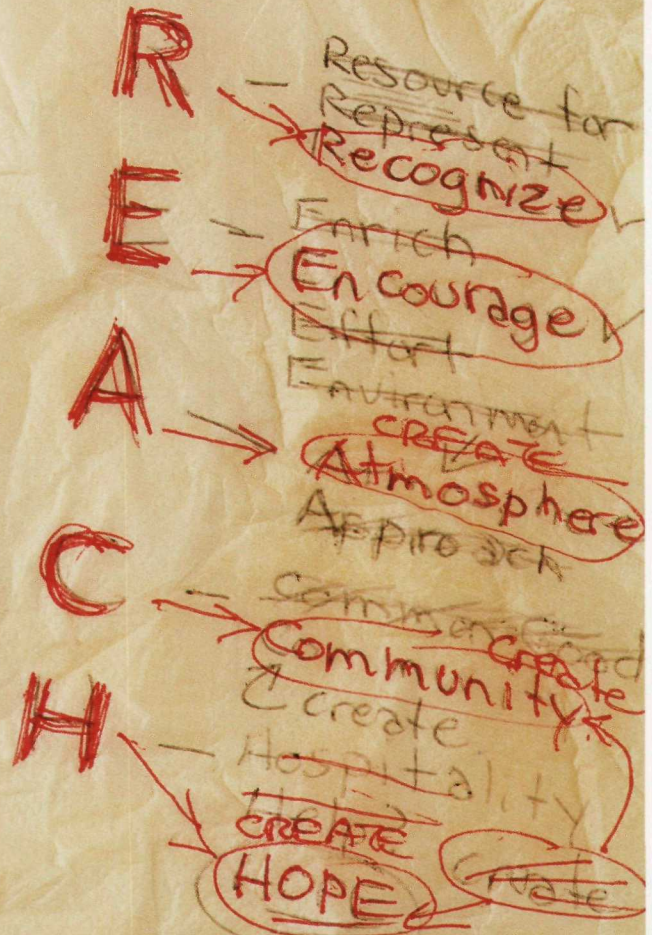 R
- Resource for
Represent
Recognize
E
- Enrich
Encourage
Effort
Environment
A
CREATE
Atmosphere
Approach
C
- Common Good
Create
Community
create
H
- Hospitality
CREATE
HOPE
Create